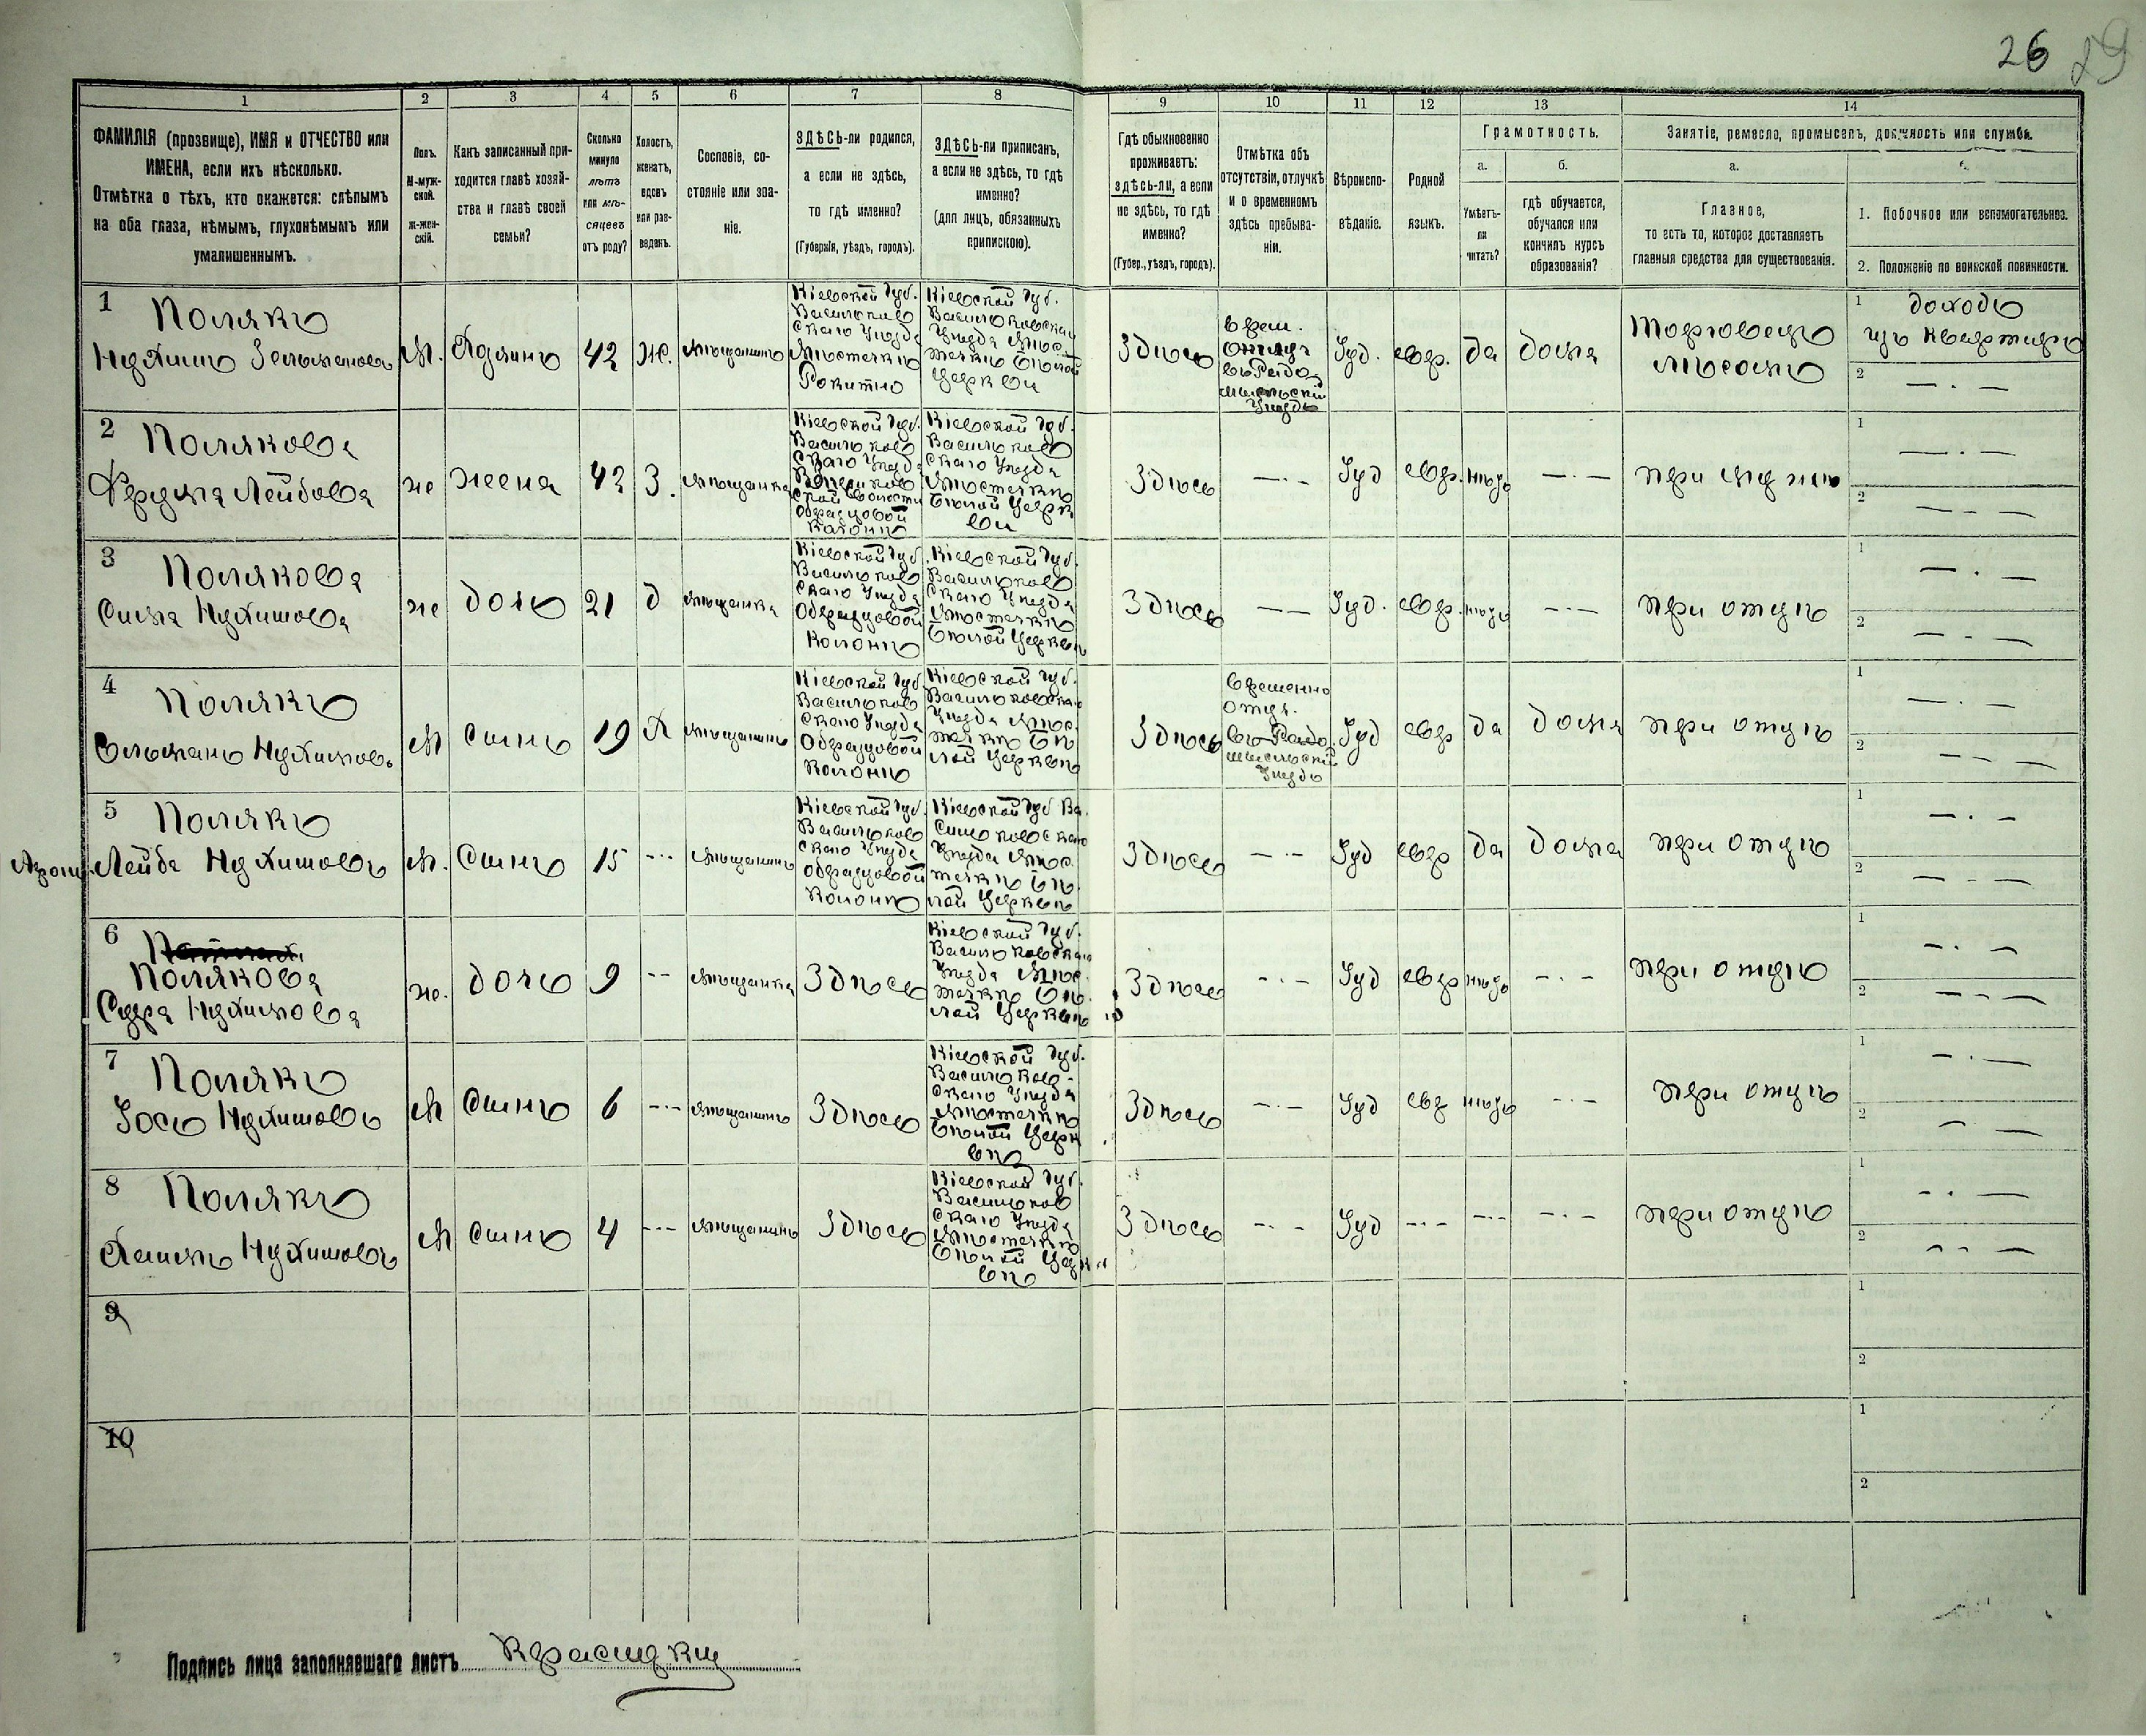 26 29
1 2 3 4 5 6 7 8 9 10 11 12 13 14
ФАМИЛІЯ (прозвище), ИМЯ и ОТЧЕСТВО или
ИМЕНА, если ихъ нѣсколько.
Отмѣтка о тѣхъ, кто окажется: слѣпымъ
на оба глаза, нѣмымъ, глухонѣмымъ или
умалишеннымъ.
Полъ.
М-муж-
ской.
ж-жен-
скій.
Какъ записанный при-
ходится главѣ хозяй-
ства и главѣ своей
семьи?
Сколько
минуло
лѣтъ
или мѣ-
сяцевъ
отъ роду?
Холостъ,
женатъ,
вдовъ
или раз-
веденъ.
Сословіе, со-
стояніе или зва-
ніе.
ЗДѢСЬ-ли родился,
а если не здѣсь,
то гдѣ именно?
(Губернія, уѣздъ, городъ).
ЗДѢСЬ-ли приписанъ,
а если не здѣсь, то гдѣ
именно?
(для лицъ, обязанныхъ
припискою).
Гдѣ обыкновенно
проживаетъ:
здѣсь-ли, а если
не здѣсь, то гдѣ
именно?
(Губер., уѣздъ, городъ).
Отмѣтка объ
отсутствіи, отлучкѣ
и о временномъ
здѣсь пребыва-
ніи.
Вѣроиспо-
вѣданіе.
Родной
языкъ.
Грамотность.
а.
Умѣетъ-
ли
читать?
б.
гдѣ обучается,
обучался или
кончилъ курсъ
образованія?
Занятіе, ремесло, промыселъ, должность или служба.
а.
Главное,
то есть то, которое доставляетъ
главныя средства для существованія.
1. Побочное или вспомогательное.
2. Положеніе по воинской повинности.
1
Полякъ
М.
Хозяинъ
42
Ж.
мѣщанинъ
Кіевской Губ.
Васильков
скаго Уѣзда
мѣстечкѣ
Рокитно
Кіевской Губ.
Васильковскаго
Уѣзда мѣс
течкѣ Бѣлой
Церкви
Здѣсь
врем.
въ Радо
мысльскій
Уѣздъ
Іуд.
евр.
да
дома
Торговецъ
мѣсомъ
1 доходъ
изъ квартиры
2 — . —
2
Полякова
Лейбова
же
жена
42
З.
мѣщанка
Кіевской Губ.
Васильков
скаго Уѣзда
Образцовой
Колоніи
Кіевской Губ.
Васильков
скаго Уѣзда
мѣстечкѣ
Бѣлой Церк
ви
Здѣсь
— . —
Іуд
евр.
нѣтъ
— . —
при мужѣ
1 — . —
2 — — —
3
Полякова
Сима Нухимова
же
дочь
21
д
мѣщанка
Кіевской Губ.
Васильков
скаго Уѣзда
Образцовой
Колоніи
Кіевской Губ.
Васильков
скаго Уѣзда
мѣстечкѣ
Бѣлой Церкви
Здѣсь
— —
Іуд.
евр.
нѣтъ
— . —
при отцѣ
1 — . —
2 — . —
4
Полякъ
М
сынъ
19
Х
мѣщанинъ
Кіевской Губ.
Васильков
скаго Уѣзда
Образцовой
Колоніи
Кіевской Губ.
Васильковскаго
Уѣзда мѣс
течкѣ Бѣ
лой Церквѣ
Здѣсь
временно
отлуч.
въ Радо
мысльскій
Уѣздъ
Іуд
евр
да
дома
при отцѣ
1 — . —
2 — — —
5
Полякъ
Лейба Нухимовъ
М.
сынъ
15
---
мѣщанинъ
Кіевской Губ.
Васильков
скаго Уѣзда
Образцовой
Колоніи
Кіевской Губ Ва
сильковскаго
Уѣзда мѣс
течкѣ Бѣ
лой Церквѣ
Здѣсь
— . —
Іуд
евр
да
дома
при отцѣ
1 — . —
2 — . —
6
Полякова
Сура Нухимова
ж.
дочь
9
--
мѣщанка
Здѣсь
Кіевской Губ.
Васильковскаго
Уѣзда мѣс
течкѣ Бѣ
лой Церквѣ
Здѣсь
— . —
Іуд
евр
нѣтъ
— . —
при отцѣ
1 — . —
2 — — —
7
Полякъ
Іось Нухимовъ
М
сынъ
6
---
мѣщанинъ
Здѣсь
Кіевской Губ.
Васильков-
скаго Уѣзда
мѣстечкѣ
Бѣлой Церк
вѣ
Здѣсь
— . —
Іуд
евр
нѣтъ
— . —
при отцѣ
1 — . —
2 — . —
8
Полякъ
Хаимъ Нухимовъ
М
сынъ
4
---
мѣщанинъ
Здѣсь
Кіевской Губ.
Васильков
скаго Уѣзда
мѣстечкѣ
Бѣлой Церк
вѣ
Здѣсь
— . —
Іуд
— . —
— . —
— . —
при отцѣ
1 — . —
2 — . —
9
1
2
10
1
2
Подпись лица заполнявшаго листъ